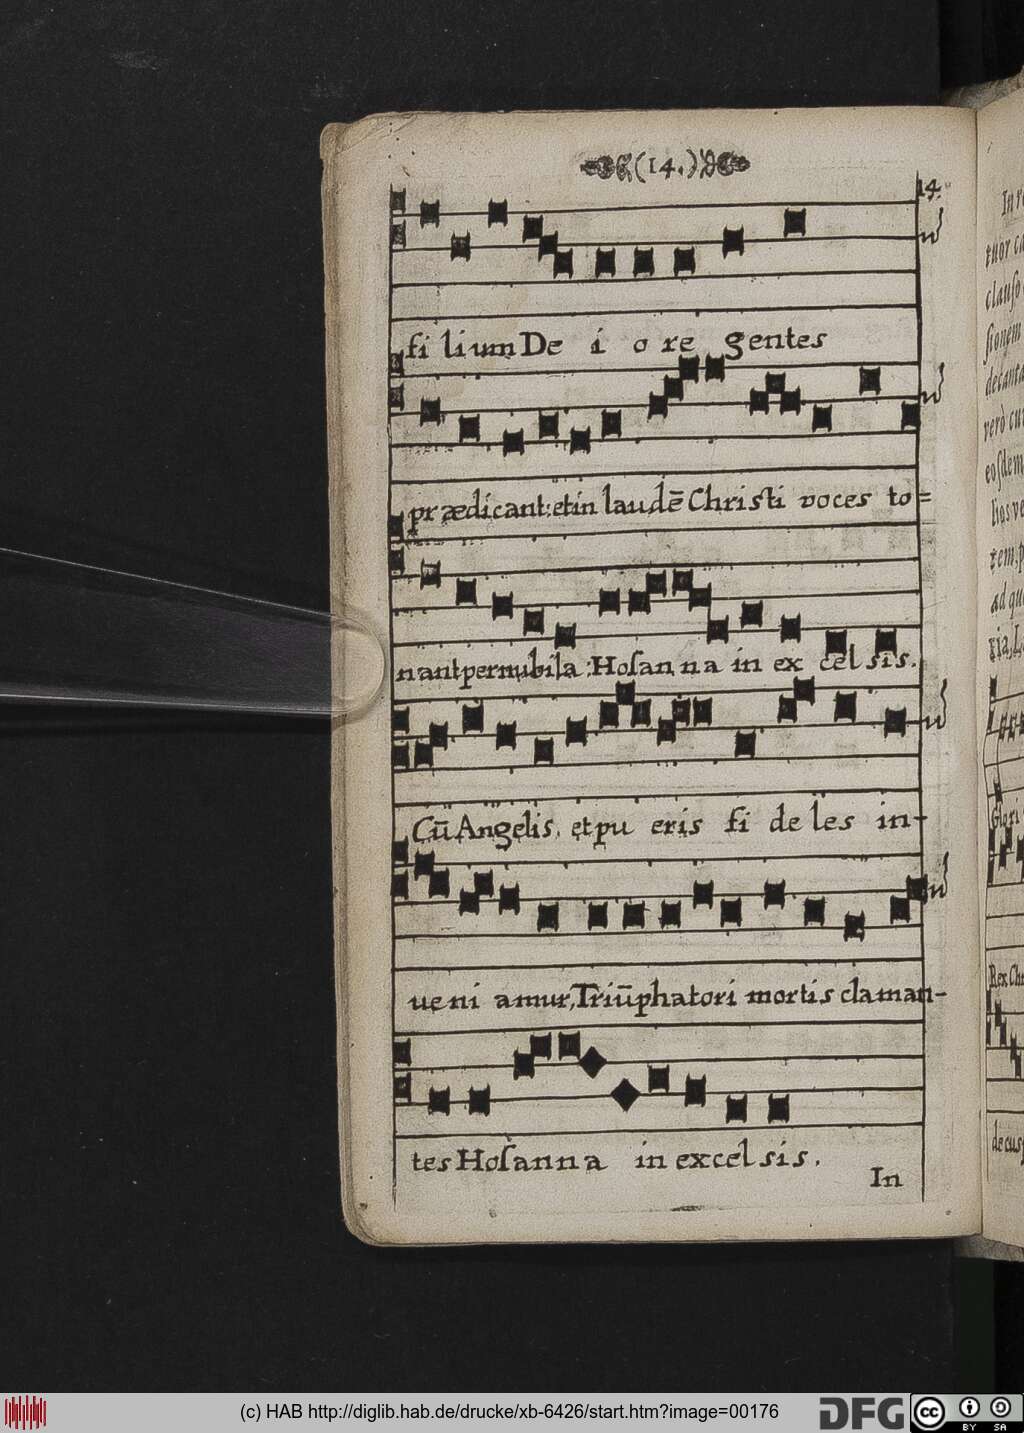 (14.)
14.
fi lium De i o re gentes
prædicant: et in laudē Christi voces to=
nant per nubila: Hoſanna in ex cel sis.
Cū Angelis, et pu eris fi de les in-
ue ni amur, Triūphatori mortis claman-
tes Hoſanna in excel sis.
In
In
tuor
clauſo
ſionem
decanta
verò
eoſdem
lias
tem, p
ad que
ria, L
Glori
Rex Chr
decus
(c) HAB http://diglib.hab.de/drucke/xb-6426/start.htm?image=00176
DFG
cc
BY SA